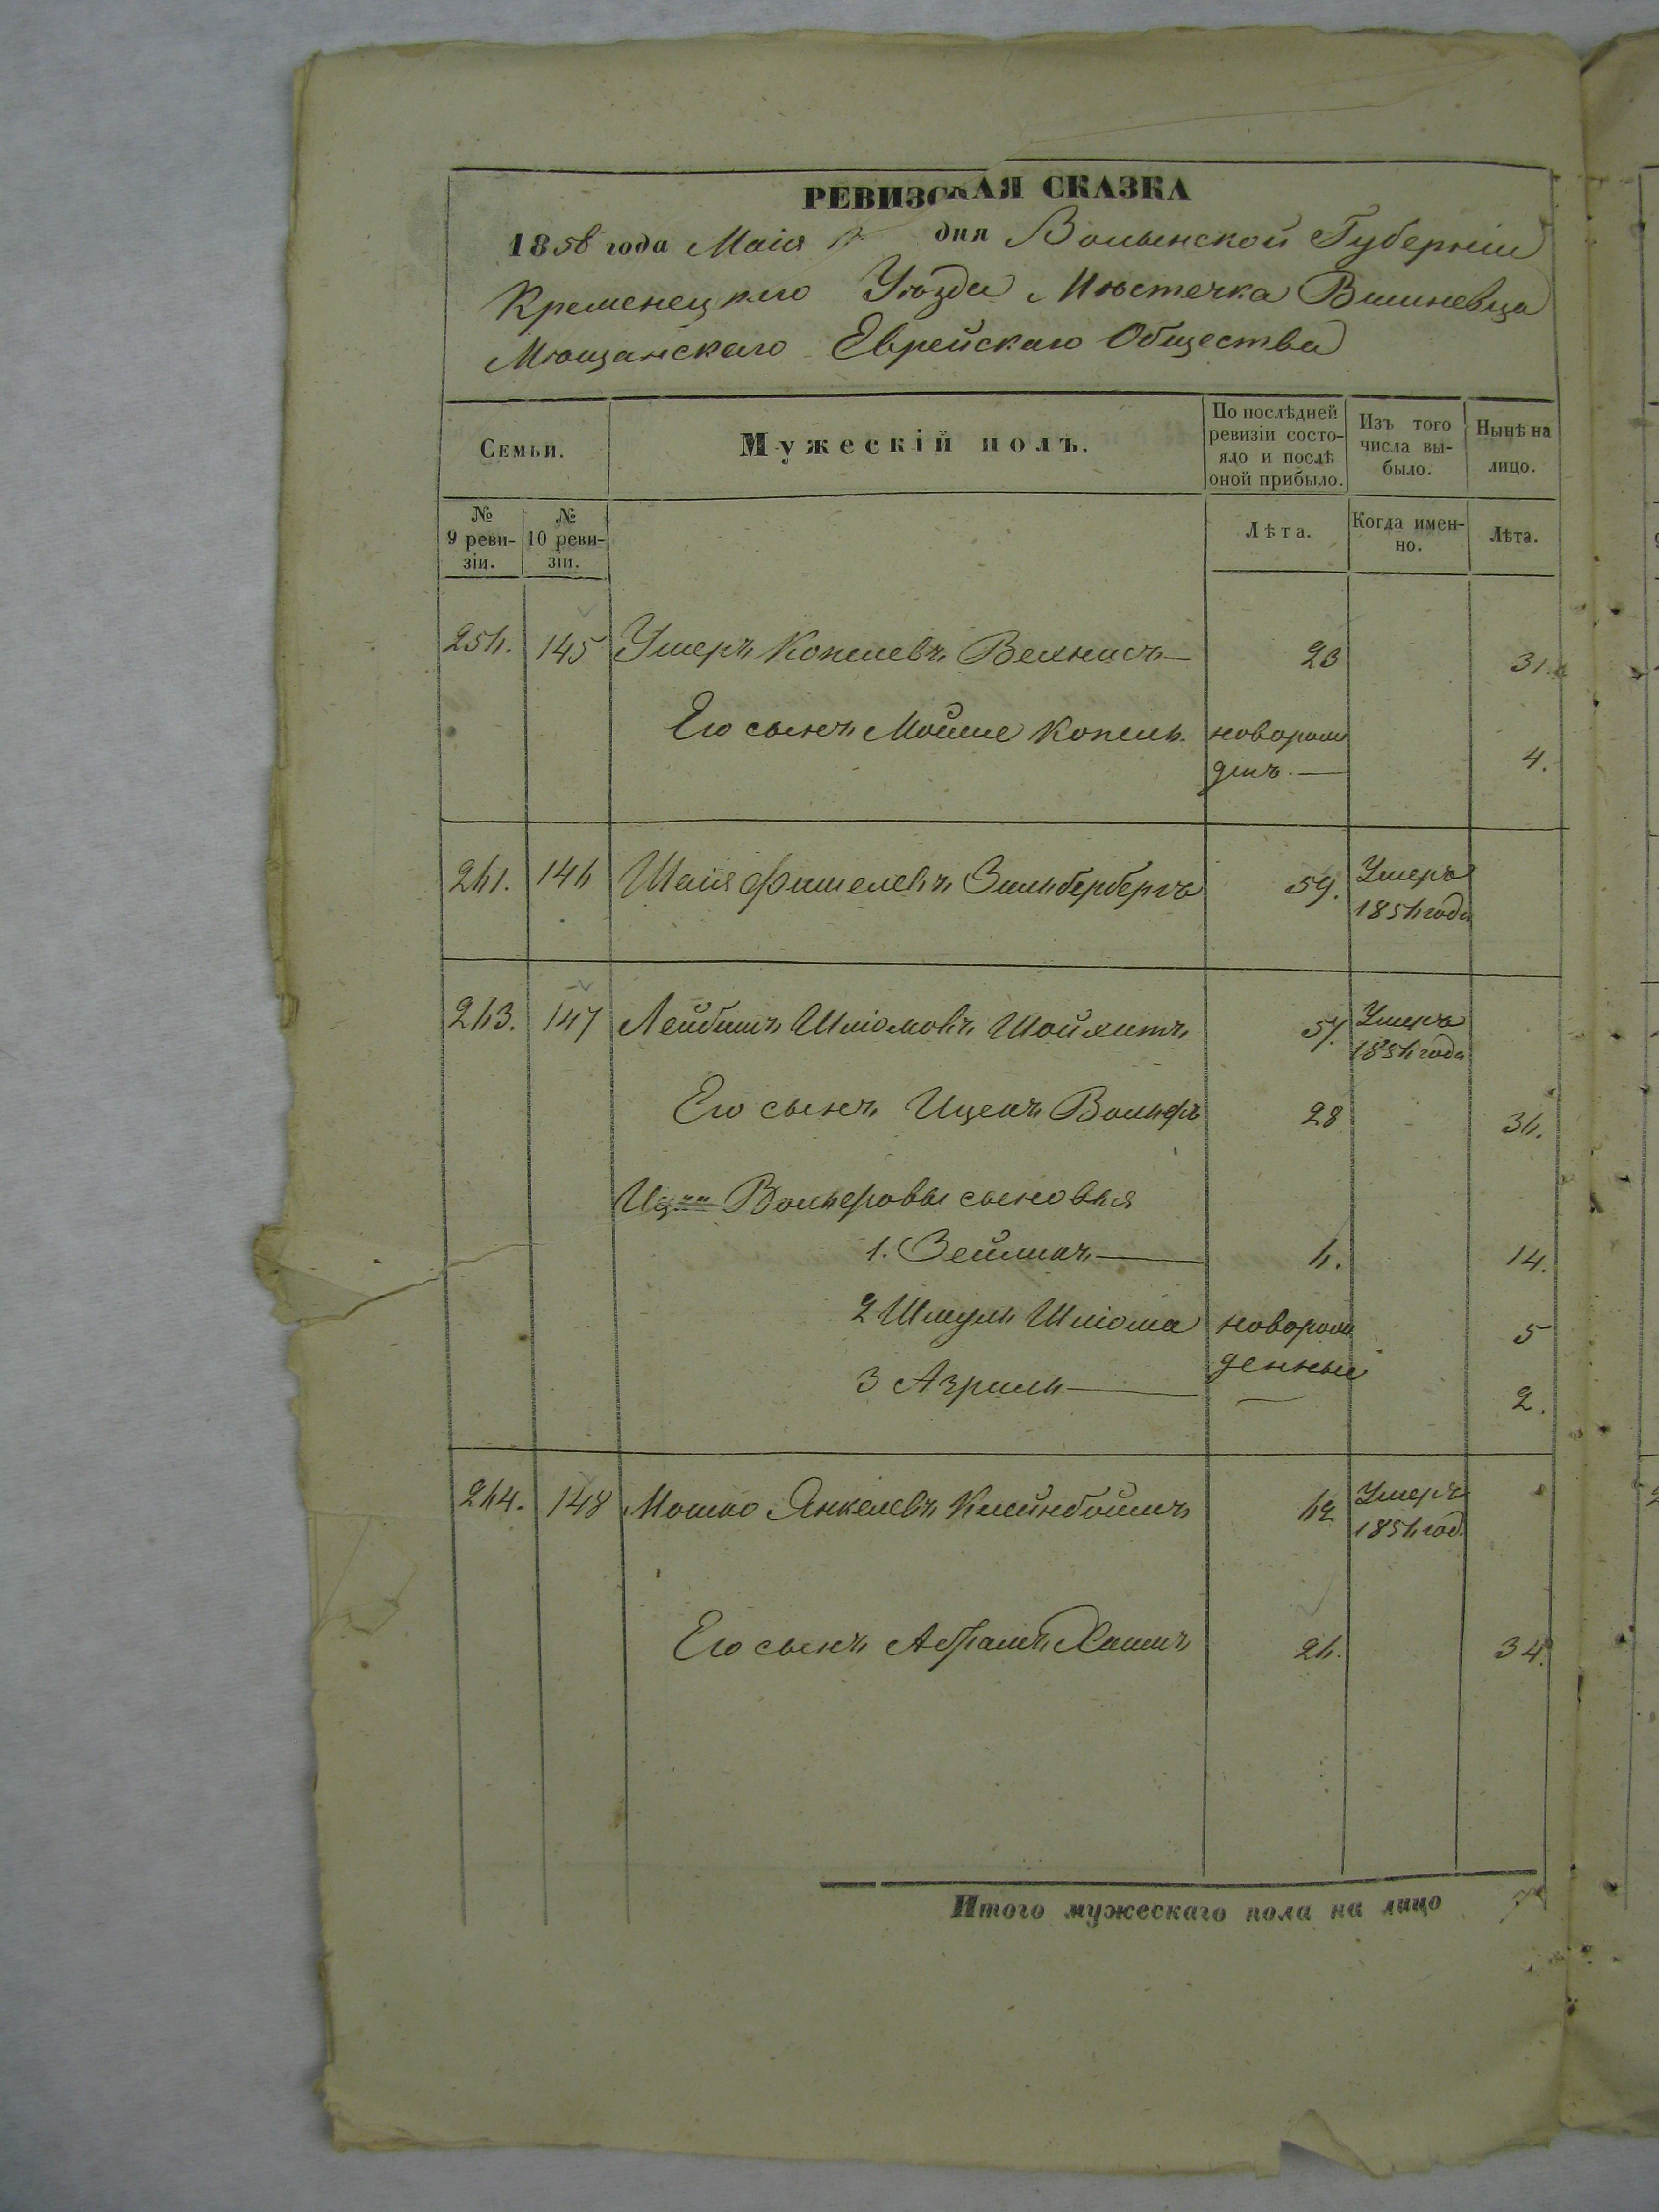 РЕВИЗСКАЯ СКАЗКА
1858 года Маія дня Волынской Губерніи
Кременецкаго Уѣзда Мѣстечка Вишневца
Мѣщанскаго Еврейскаго Общества
Семьи.
Мужескій полъ.
По послѣдней ревизіи состояло и послѣ оной прибыло.
Изъ того числа выбыло.
Нынѣ на лицо.
№ 9 ревизіи.
№ 10 ревизіи.
Лѣта.
Когда именно.
Лѣта.
256. 145 Ушеръ Копелевъ 23 31.
Его сынъ Мойше Копель. новорожденъ. — 4.
261. 146 Шаія Фишелевъ Зильбербергъ 59. Умеръ 1856 года
263. 147 Лейбишъ Шліомовъ Шойхетъ 57. Умеръ 1856 года
Его сынъ Ицекъ Вольфъ 28 36.
Вольфовы сыновья
1. Зейликъ — 6. 14.
2 Шмуль Шліома новорожденные 5
3 Азриль — 2.
264. 148 Мошко Янкелевъ Клейнбоймъ 62 Умеръ 1856 год.
Его сынъ Абрамъ Хаимъ 26. 34.
Итого мужескаго пола на лицо 7